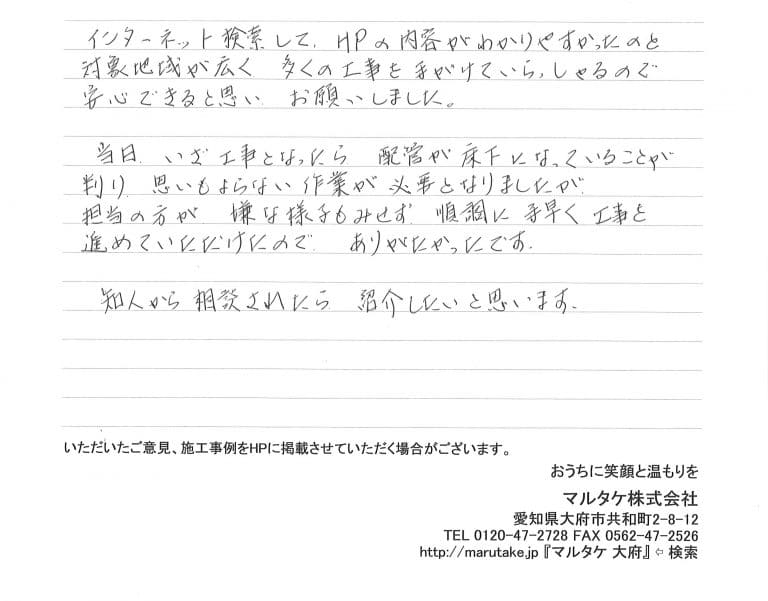 インターネット検索して、HPの内容がわかりやすかったのと
対象地域が広く 多くの工事を手がけていらっしゃるので
安心できると思い お願いしました。
当日、いざ工事となったら 配管が床下になっていることが
判り、思いもよらない作業が必要となりましたが
担当の方が 嫌な様子もみせず 順調に手早く工事を
進めていただけたので、ありがたかったです。
知人から相談されたら 紹介したいと思います。
いただいたご意見、施工事例をHPに掲載させていただく場合がございます。
おうちに笑顔と温もりを
マルタケ株式会社
愛知県大府市共和町2-8-12
TEL 0120-47-2728 FAX 0562-47-2526
http://marutake.jp『マルタケ 大府』⇦検索